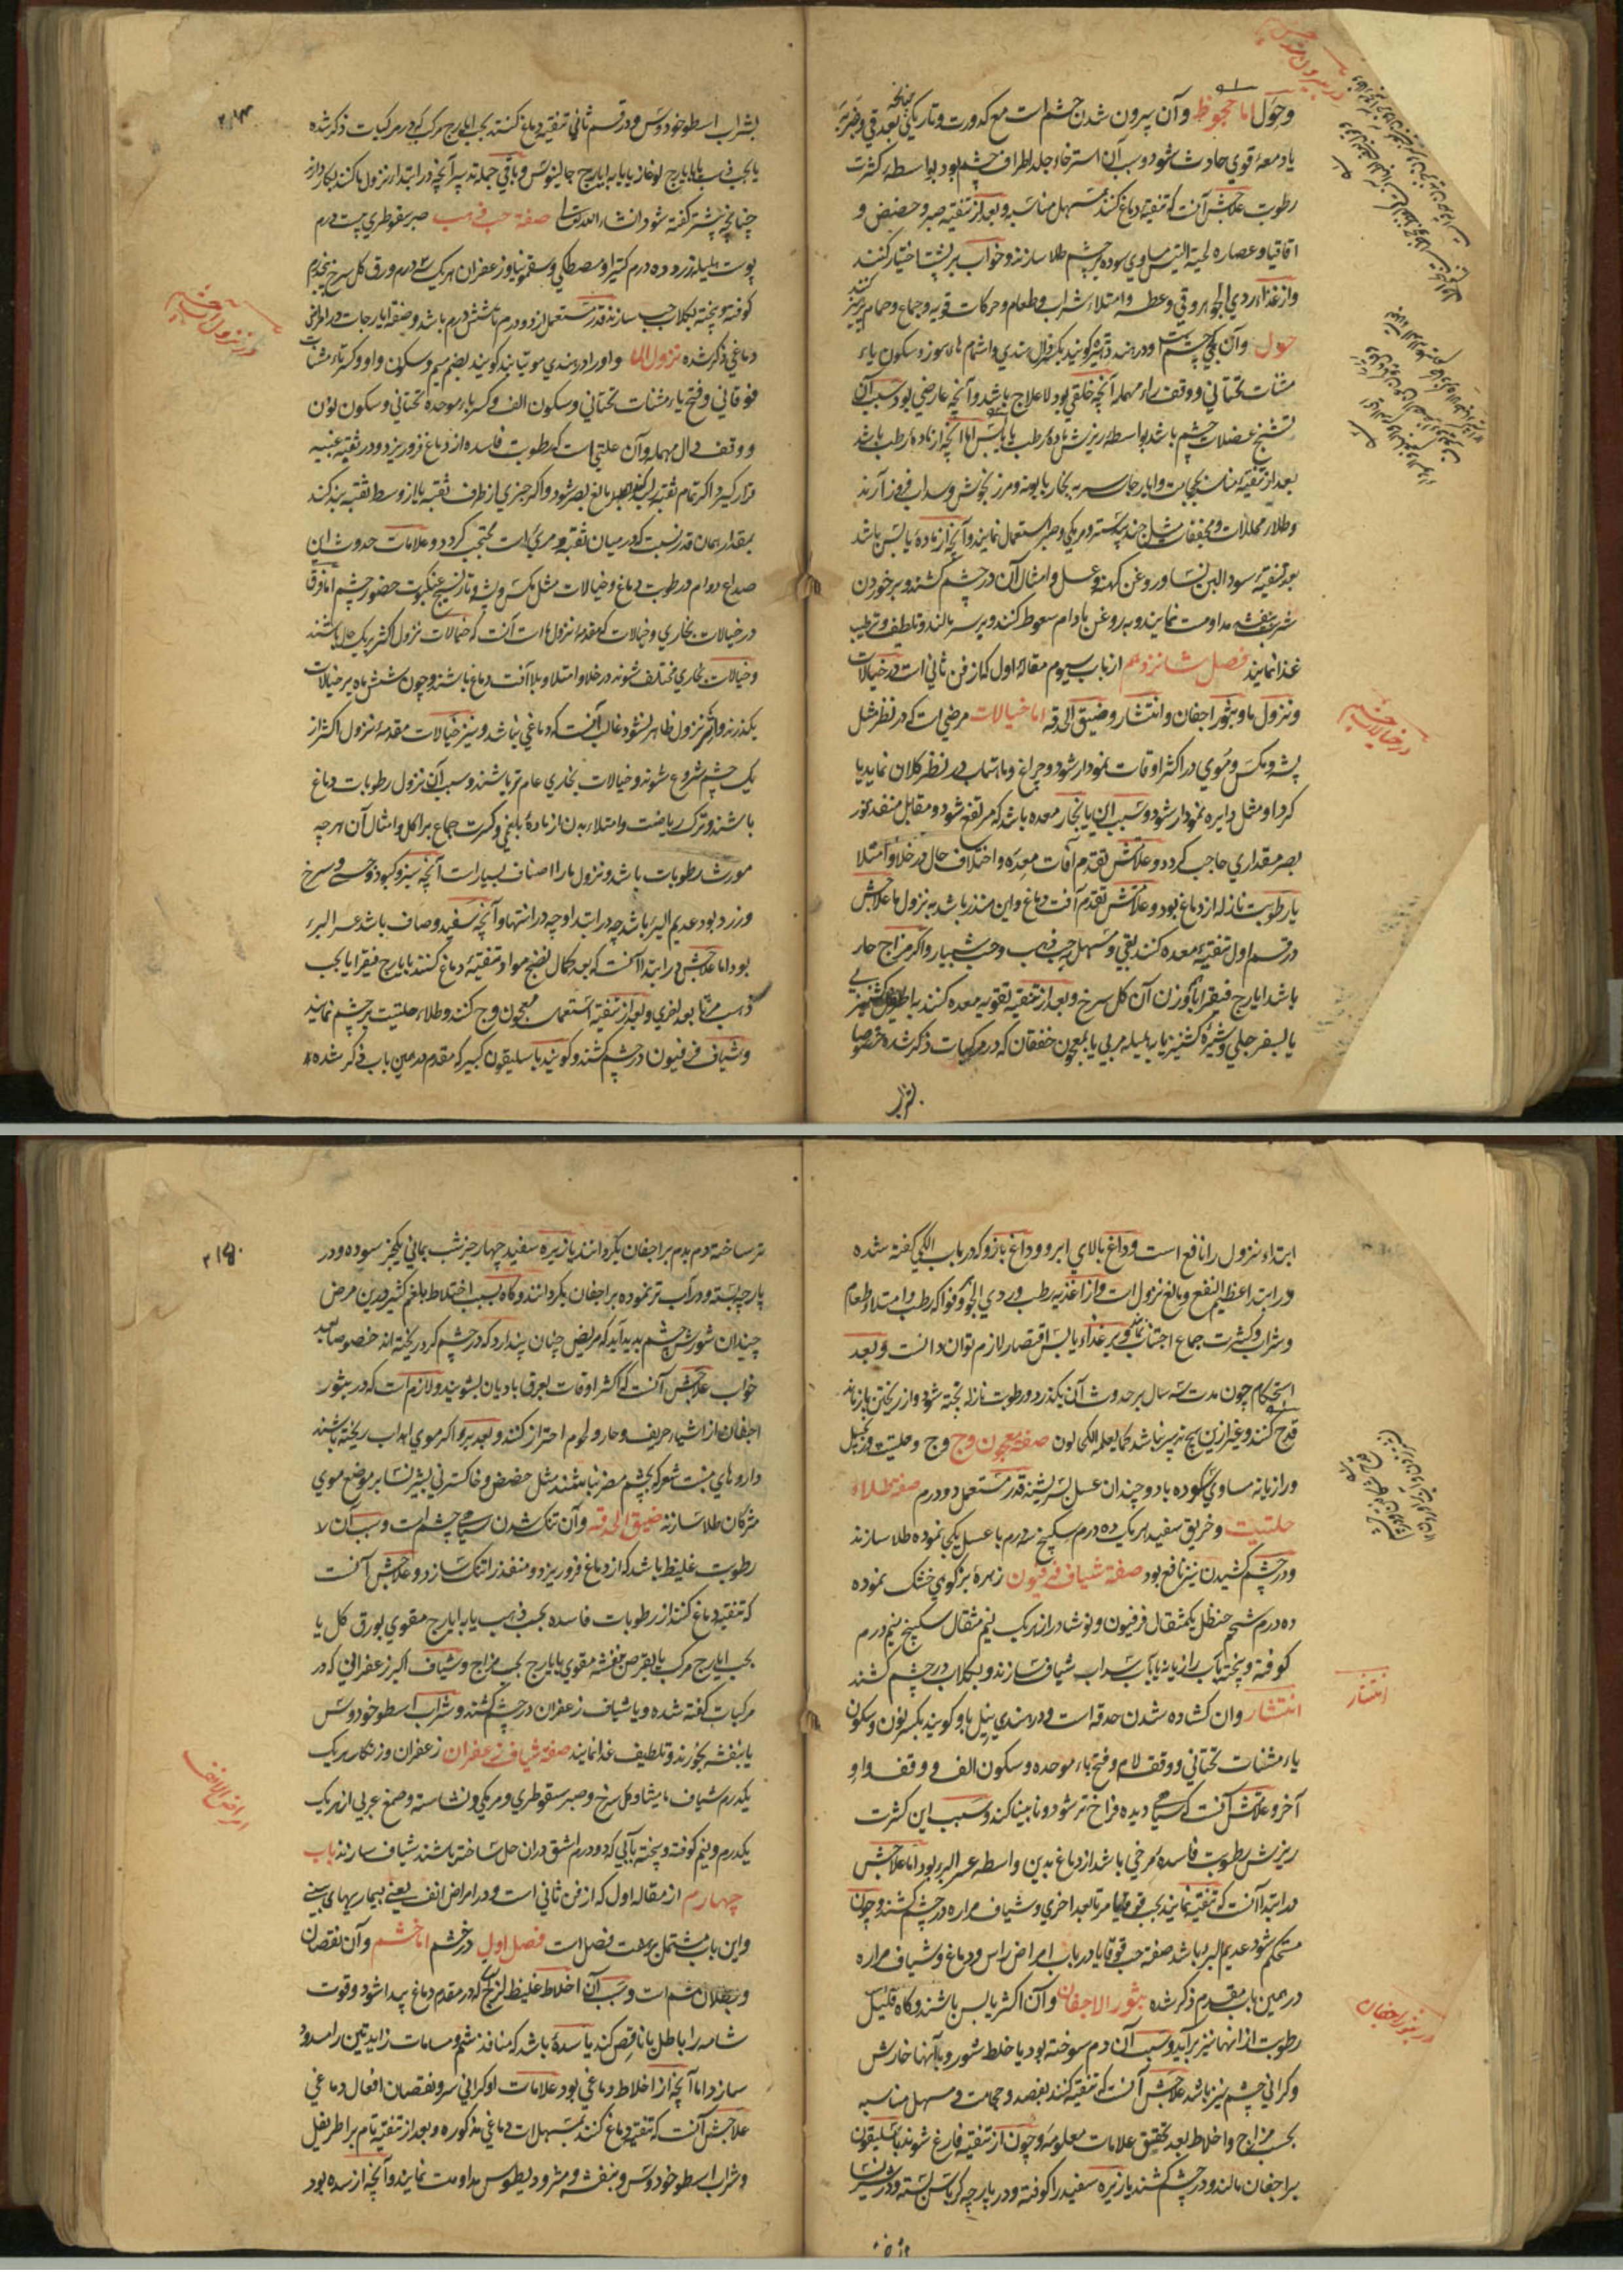 وحول اما جحوظ وآن بیرون شدن چشم است مع کدورت و تاریکی بعد قی و
یا دمعهٔ قوی حادث شود و سبب آن استرخاء جلد اطراف چشم بود بواسطه کثرت
رطوبت علاجش آنست که تنقیهٔ دماغ کنند بمسهل مناسبه و بعد از تنقیه صبر و حضض و
اقاقیا و عصاره لحیة التیس مساوی سوده بر چشم طلا سازند و خواب بر پشت اختیار کنند
و از غذاء ردی الجوهر و قی و عطسه و امتلاء شراب و طعام و حرکات قویه و جماع و حمام پرهیز کنند
حول وآن کجی چشم است و در هند
مثنات تحتانی و وقف راء مهمله آنچه خلقی بود لاعلاج باشد و آنچه عارضی بود سبب آن
تشنج عضلات چشم باشد بواسطه ریزش مادهٔ رطب یا یابس اما آنچه از مادهٔ رطب باشد
بعد از تنقیه بحبات و ایارجات سر به بخار بابونه و مرزنجوش و سداب فرود آرند
و طلاء محللات و مجففات مثل جندبیدستر و مرمکی و صبر استعمال نمایند و آنچه از مادهٔ یابس باشد
بعد تنقیهٔ سودا لبن نسا و روغن کهنه و عسل و امثال آن در چشم کشند و بر خوردن
شربت بنفشه مداومت نمایند و به روغن بادام سعوط کنند و بر سر مالند و تلطیف و ترطیب
غذا نمایند فصل شانزدهم از باب سیوم مقالهٔ اول که از فن ثانی است در خیالات
و نزول ماء و بثور اجفان و انتشار و ضیق الحدقه اما خیالات مرضی است که در نظر مثل
پشه و مکس و موی در اکثر اوقات نمودار شود و چراغ و ماهتاب در نظر کلان نماید یا
گرد او مثل دایره نمودار شود و سبب این یا بخار معده باشد که مرتفع شود و مقابل منفذ نور
بصر مقداری حاجب گردد و علامتش تقدم آفات معده و اختلاف حال در خلا و امتلا
یا رطوبت نازله از دماغ بود و علامتش تقدم آفت دماغ و این منذر باشد به نزول ماء علاجش
در قسم اول تنقیهٔ معده کنند بقی و مسهل بحب ذهب و حب شبیار و اگر مزاج حار
باشد ایارج فیقرا با هموزن آن گل سرخ و بعد از تنقیه تقویه معده کنند به اطریفل کشنیزی
یا بسفرجلی و شیرهٔ کشنیز یا به هلیله مربی یا بمعجون خفقان که در مرکبات ذکر شده خصوصا
در خیالات چشم
۲۱۴
بشراب اسطوخودوس و در قسم ثانی تنقیه دماغ کنند بحب ایارج مرکب که در مرکبات ذکر شده
یا بحب ذهب یا بایارج لوغاذیا یا به ایارج جالینوس و باقی جمله تدبیر آنچه در ابتدا نزول ما کنند بکار دارند
چنانچه پیشتر گفته شود انشاء الله تعالی صفة حب ذهب صبر سقوطری بیست درم
پوست هلیله زرد ده درم کتیرا و مصطکی و سقمونیا و زعفران هر یک سه درم ورق گل سرخ پنجدرم
کوفته و بیخته بگلاب حب سازند قدر مستعمل از دو درم تا شش درم باشد و صفة ایارجات در امراض
دماغی ذکر شده نزول الماء و او را در هندی موتیابند گویند بضم میم و سکون واو و کسر تاء مثنات
فوقانی و فتح یاء مثنات تحتانی و سکون الف و کسر باء موحده تحتانی و سکون نون
و وقف دال مهمله وآن علتی است که رطوبت فاسده از دماغ فرو ریزد و در ثقبه عنبیه
قرار گیرد اگر تمام ثقبه را بگیرد مانع بصر شود و اگر جزئی از طرف ثقبه یا از وسط ثقبه بند کند
بمقدار همان قدر نسبت که در میان ثقبه و مرئی است محتجب گردد و علامات حدوث این
صداع دوام و رطوبت دماغ و خیالات مثل مکس و پشه و تار نسج عنکبوت حضور چشم اما فرق
در خیالات بخاری و خیالات که مقدمهٔ نزول ماء است آنست که خیالات نزول اکثر بر یک حال باشند
و خیالات بخاری مختلف شوند در خلا و امتلا و بلا آفت دماغ باشند و چون شش ماه بر خیالات
بگذرند و اثر نزول ظاهر نشود غالب آنست که دماغی نباشد و نیز خیالات مقدمهٔ نزول اکثر از
یک چشم شروع شوند و خیالات بخاری عام تر باشند و سبب آن نزول رطوبات دماغ
باشند و ترک ریاضت و امتلاء بدن از مادهٔ بلغمی و کثرت جماع بر اکل و امثال آن هر چه
مورث رطوبات باشد و نزول ماء را اصناف بسیار است آنچه سبز و کبود و جصی و سرخ
و زرد بود عدیم البرء باشد چه در ابتدا و چه در انتها و آنچه سفید و صاف باشد عسر البرء
بود اما علاجش در ابتدا آنست که بعد کمال نضج مواد تنقیهٔ دماغ کنند بایارج فیقرا یا بحب
ذهب مرة بعد اخری و بعد از تنقیه استعمال معجون وج کنند و طلاء حلتیت بر چشم نمایند
و شیاف فرفیون در چشم کشند و گویند باسلیقون کبیر که مقدم درهمین باب ذکر شده
در نزول آب چشم
ابتداء نزول را نافع است و داغ بالای ابرو و داغ بازو که در باب الکی گفته شده
در ابتدا عظیم النفع و مانع نزول است و از اغذیه رطب و ردی الجوهر و فواکه رطب و امتلاء طعام
و شراب و کثرت جماع اجتناب نمایند و بر غذاء یابس اقتصار لازم توان دانست و بعد
استحکام چون مدت سه سال بر حدوث آن بگذرد و رطوبت نازله پخته شود و از ریختن باز ماند
قدح کنند و غیر ازین هیچ تدبیر نباشد کما یعلمه الکحالون صفهٔ معجون وج وج و حلتیت و زنجبیل
و رازیانه مساوی سوده با دو چندان عسل بسرشند قدر مستعمل دو درم صفهٔ طلاء
حلتیت و خربق سفید هر یک ده درم سکبینج سه درم با عسل یکجا نموده طلا سازند
و در چشم کشیدن نیز نافع بود صفة شیاف فرفیون زهرهٔ بز کوهی خشک نموده
ده درم شحم حنظل یکمثقال فرفیون و نوشادر از هر یک نیم مثقال سکبینج نیم درم
کوفته و بیخته بآب رازیانه یا بآب سداب شیاف سازند و بگلاب در چشم کشند
انتشار وان کشاده شدن حدقه است و در هندی نیل بابو گویند بکسر نون و سکون
یاء مثنات تحتانی و وقف لام و فتح باء موحده و سکون الف و وقف واو
آخر و علامتش آنست که سیاهی دیده فراخ تر شود و نابینا کند و سبب این کثرت
ریزش رطوبت فاسدهٔ مرخی باشد از دماغ بدین واسطه عسر البرء بود اما علاجش
در ابتدا آنست که تنقیه نمایند بحب قوقایا مرة بعد اخری و شیاف مراره در چشم کشند و چون
مستحکم شود عدیم البرء باشد صفة حب قوقایا در باب امراض راس و دماغ و شیاف مراره
در همین باب مقدم ذکر شده بثور الاجفان وآن اکثر یابس باشند و گاه قلیل
رطوبت از انها نیز برآید و سبب آن دم سوخته بود یا خلط شور و بآنها خارش
و گرانی چشم نیز باشد علاجش آنست که تنقیه کنند بفصد و حجامت و مسهل مناسبه
بحسب مزاج و اخلاط بعد تحقیق علامات معلومه و چون از تنقیه فارغ شوند باسلیقون
بر اجفان مالند و در چشم کشند یا زیره سفید را کوفته و در پارچه کرباس بسته و در شیر نسا
انتشار
در بثور اجفان
۲۱۵
تر ساخته دم بدم بر اجفان بگردانند یا زیره سفید چهار جز شب یمانی یکجز سوده و در
پارچه بسته و در آب تر نموده بر اجفان بگردانند و گاه بسبب اختلاط بلغم کثیر درین مرض
چندان شورش چشم پدید آید که مریض چنان پندارد که در چشم گرد ریخته اند خصوصا بعد
خواب علاجش آنست که اکثر اوقات بعرق بادیان بشویند و لازم است که در بثور
اجفان از اشیاء حریف و حار و لحوم احتراز کنند و بعد برء اگر موی اهداب ریخته باشند
داروهای منبت شعر که بچشم مضر نباشند مثل حضض و خاکستر نی بشیر نسا بر موضع موی
مژگان طلا سازند ضیق الحدقه وآن تنگ شدن سیاهی چشم است و سبب آن
رطوبت غلیظ باشد که از دماغ فرو ریزد و منفذ را تنگ سازد و علاجش آنست
که تنقیه دماغ کنند از رطوبات فاسده بحب ذهب یا به ایارج مقوی بورق گل یا
بحب ایارج مرکب یا بقرص بنفشه مقوی بایارج بحسب مزاج و شیاف اکبر زعفرانی که در
مرکبات گفته شده و یا شیاف زعفران در چشم کشند و شراب اسطوخودوس
یا بنفشه بخورند و تلطیف غذا نمایند صفة شیاف زعفران زعفران و زنگار هر یک
یکدرم شیاف مامیثا و گل سرخ و صبر سقوطری و مرمکی و نشاسته و صمغ عربی از هر یک
یکدرم و نیم کوفته و بیخته بآبی که دو درم اشق دران حل ساخته باشند شیاف سازند باب
چهارم از مقاله اول که از فن ثانی است و در امراض انف یعنی بیماریهای بینی
و این باب مشتمل بر هفت فصل است فصل اول در خشم اما خشم وآن نقصان
و بطلان شم است و سبب آن اخلاط غلیظ لزج که در مقدم دماغ پیدا شود و قوت
شامه را باطل یا ناقص کند یا سده باشد که منافذ شم و مسامات زایدتین را مسدود
سازد اما آنچه از اخلاط دماغی بود علامات او گرانی سر و نقصان افعال دماغی
علاجش آنست که تنقیه دماغ کنند بمسهلات دماغی مذکوره و بعد از تنقیهٔ تام بر اطریفل
و شراب اسطوخودوس و بنفشه و مثرودیطوس مداومت نمایند و آنچه از سده بود